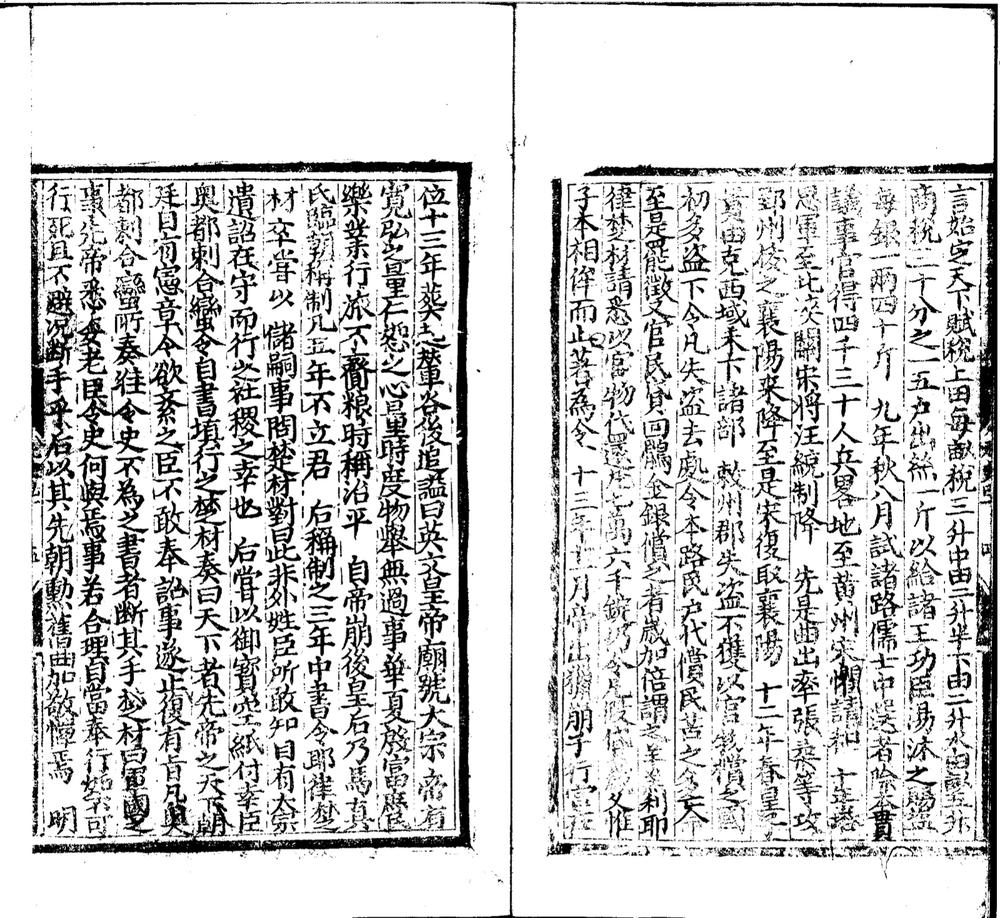 言始定天下賦稅上田每畝稅三升中田二升半下田二升水田畝五升
商稅三十分之一五戶出絲一斤以給諸王功臣湯沐之賜鹽
每銀一兩四十斤　九年秋八月試諸路儒士中選者除本貫
議事官得四千三十人兵畧地至黃州宋懼請和　十
思軍至北峽關宋將汪統制降　先是曲出率張柔等攻
郢州後之襄陽來降至是宋復取襄陽　十二年春皇
貴由克西域未下諸部　敕州郡失盗不獲以官物償之國
初多盗下令凡失盗去處令本路民戶代償民苦之
至是罷徵又官民貸回鶻金銀償之者歲加倍謂之羊羔利耶
律楚材請悉以官物代還凡七萬六千錠仍令凡假貸歲久惟
子本相侔而止著為令　十三年十一月帝出獵　崩于行宮在
位十三年葬起輦谷後追謚曰英文皇帝廟號太宗帝有
寬弘之量仁恕之心量時度物舉無過事華夏殷富庶民
樂業行旅不齎粮時稱治平　自帝崩後皇后乃馬真
氏臨朝稱制凡五年不立君　后稱制之三年中書令耶律楚
材卒嘗以　儲嗣事問楚材對曰此非外姓臣所敢知自有太宗
遺詔在守而行之社稷之幸也　后嘗以御寶空紙付幸臣
奥都剌合蠻令自書填行之楚材奏曰天下者先帝之天下朝
廷自有憲章今欲紊之臣不敢奉　詔事遂止復有旨凡奥
都剌合蠻所奏准令史不為之書者斷其手楚材曰軍國之
事先帝悉委老臣令史何與焉事若合理自當奉行如不可
行死且不避况斷手乎后以其先朝勳舊曲加敬憚焉　明